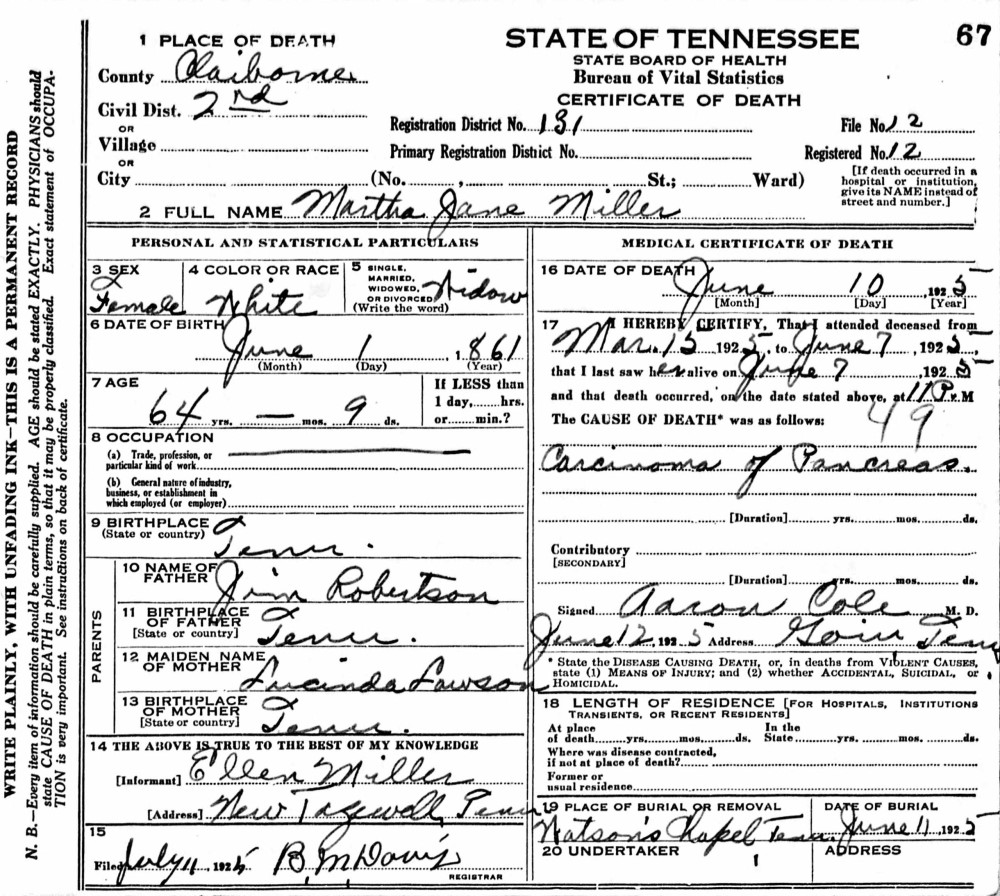 67
STATE OF TENNESSEE
STATE BOARD OF HEALTH
Bureau of Vital Statistics
CERTIFICATE OF DEATH
1 PLACE OF DEATH
County Claiborne
Civil Dist. 2nd
OR
Village
OR
City (No. , St.; Ward)
Registration District No. 131 File No. 12
Primary Registration District No. Registered No. 12
[If death occurred in a
hospital or institution,
give its NAME instead of
street and number.]
2 FULL NAME Martha Jane Miller
PERSONAL AND STATISTICAL PARTICULARS
3 SEX
Female
4 COLOR OR RACE
White
5 SINGLE,
MARRIED,
WIDOWED,
OR DIVORCED
(Write the word)
Widow
6 DATE OF BIRTH
June 1 1861
(Month) (Day) (Year)
7 AGE
64 yrs. — mos. 9 ds.
If LESS than
1 day, hrs.
or min.?
8 OCCUPATION
(a) Trade, profession, or
particular kind of work
(b) General nature of industry,
business, or establishment in
which employed (or employer)
9 BIRTHPLACE
(State or country)
Tenn.
PARENTS
10 NAME OF
FATHER
Jim Robertson
11 BIRTHPLACE
OF FATHER
[State or country]
Tenn.
12 MAIDEN NAME
OF MOTHER
Lucinda Lawson
13 BIRTHPLACE
OF MOTHER
[State or country]
Tenn.
14 THE ABOVE IS TRUE TO THE BEST OF MY KNOWLEDGE
[Informant] Ellen Miller
[Address] New Tazewell, Tenn
15
Filed July 11, 1925 B. M. Davis
REGISTRAR
MEDICAL CERTIFICATE OF DEATH
16 DATE OF DEATH
June 10, 1925
[Month] [Day] [Year]
17 I HEREBY CERTIFY, That I attended deceased from
Mar. 15 1925, to June 7, 1925,
that I last saw her alive on June 7, 1925
and that death occurred, on the date stated above, at 11 P. M
The CAUSE OF DEATH* was as follows:
49
Carcinoma of Pancreas.
[Duration] yrs. mos. ds.
Contributory
[SECONDARY]
[Duration] yrs. mos. ds.
Signed Aaron Cole M. D.
June 12, 1925 Address Goin Tenn
* State the DISEASE CAUSING DEATH, or, in deaths from VIOLENT CAUSES,
state (1) MEANS OF INJURY; and (2) whether ACCIDENTAL, SUICIDAL, or
HOMICIDAL.
18 LENGTH OF RESIDENCE [FOR HOSPITALS, INSTITUTIONS
TRANSIENTS, OR RECENT RESIDENTS]
At place In the
of death yrs. mos. ds. State yrs. mos. ds.
Where was disease contracted,
if not at place of death?
Former or
usual residence
19 PLACE OF BURIAL OR REMOVAL
Watson's Chapel Tenn.
DATE OF BURIAL
June 11, 1925
20 UNDERTAKER ADDRESS
WRITE PLAINLY, WITH UNFADING INK—THIS IS A PERMANENT RECORD
N. B.—Every item of information should be carefully supplied. AGE should be stated EXACTLY. PHYSICIANS should
state CAUSE OF DEATH in plain terms, so that it may be properly classified. Exact statement of OCCUPA-
TION is very important. See instructions on back of certificate.